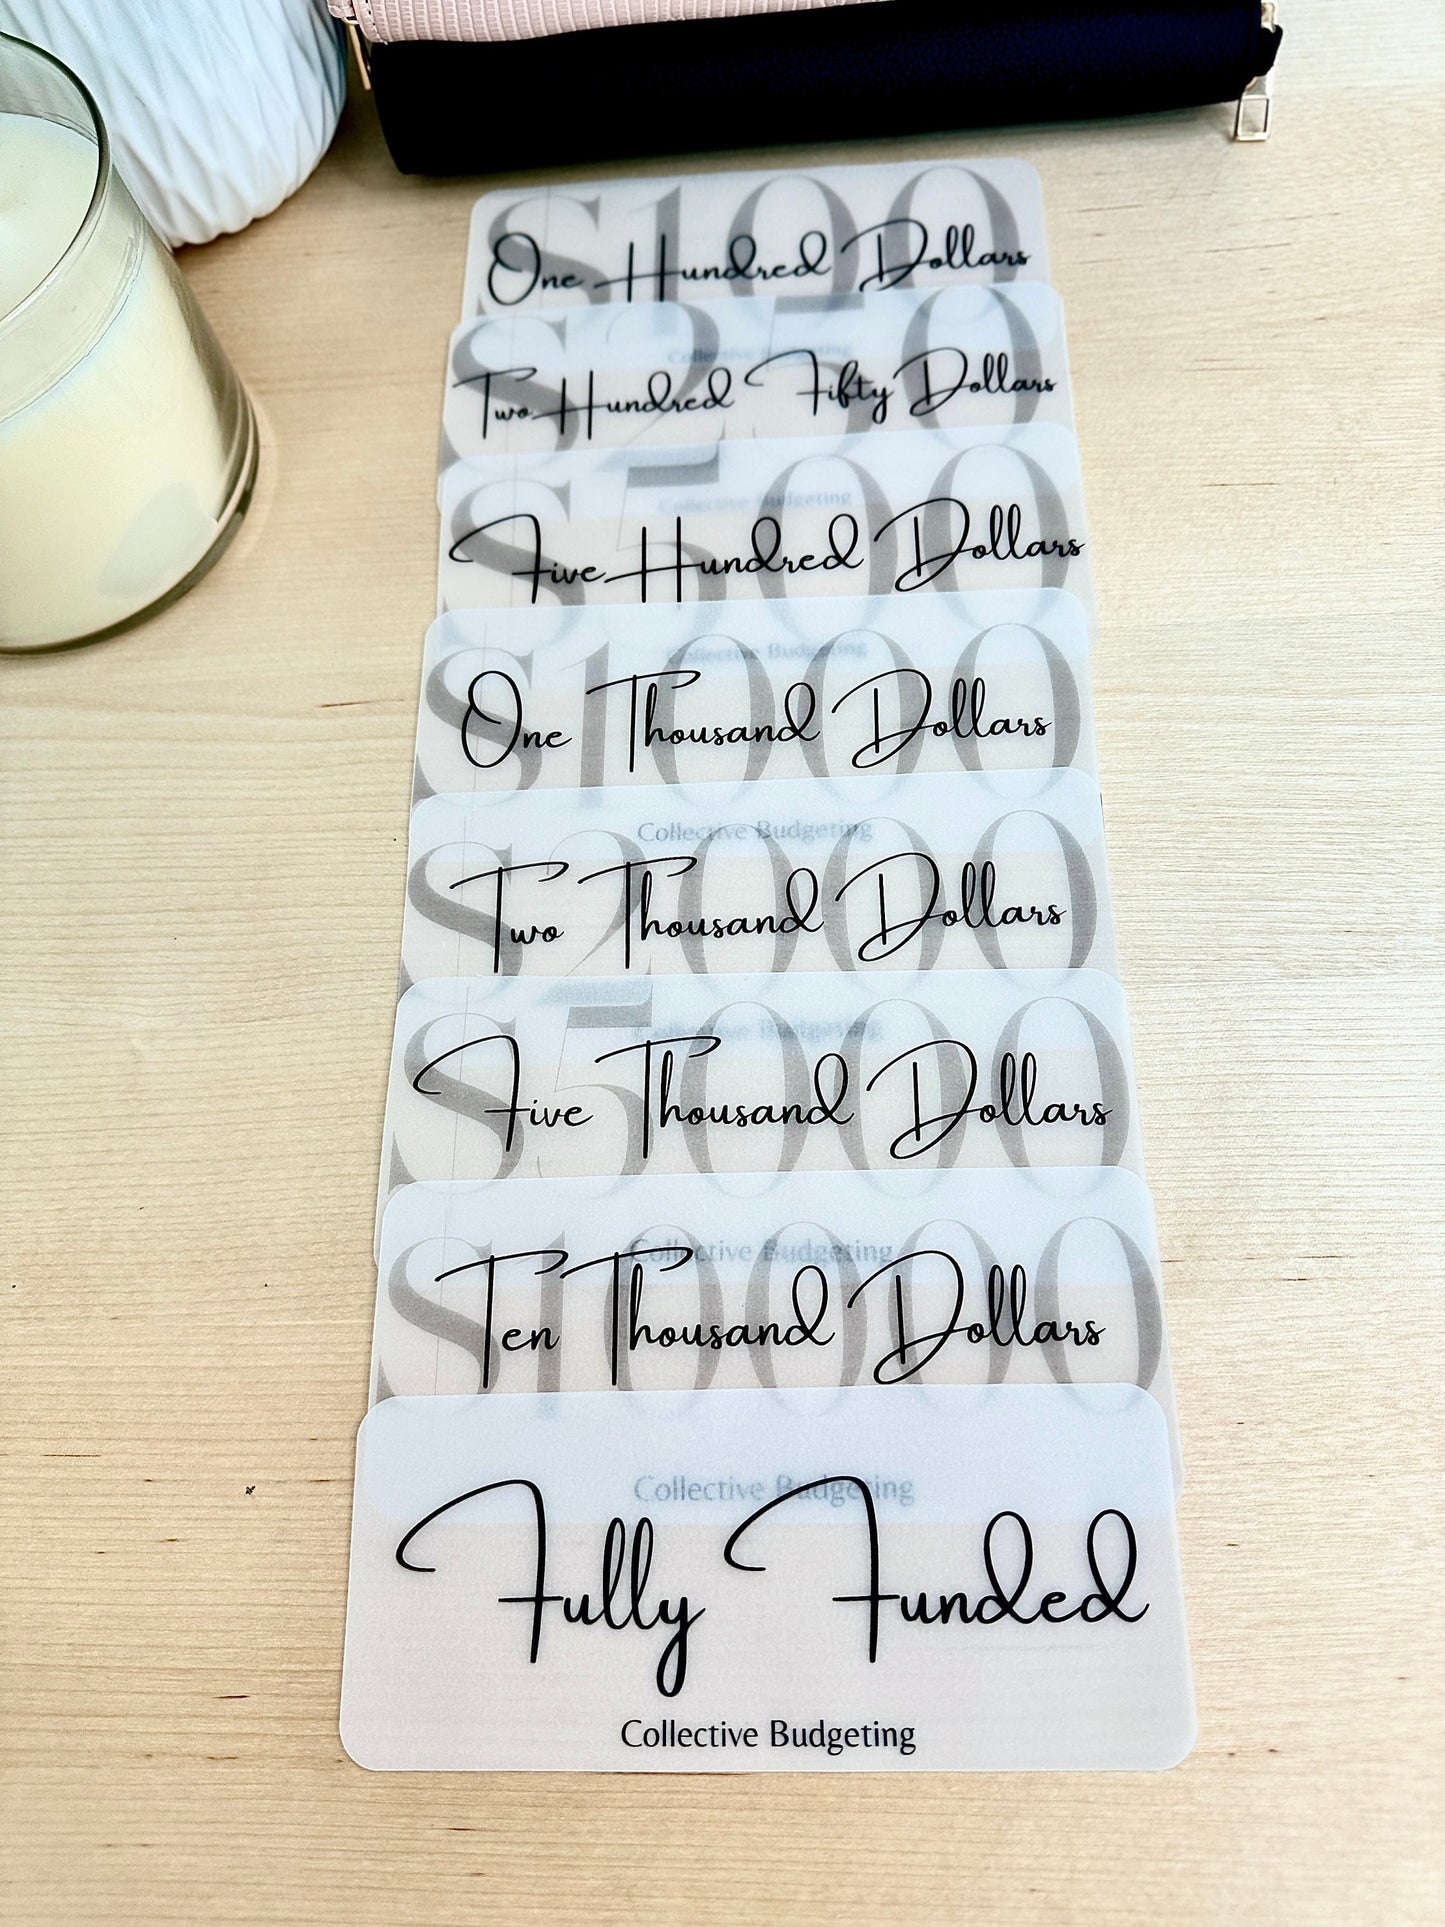 $100
One Hundred Dollars
Collective Budgeting
$250
Two Hundred Fifty Dollars
Collective Budgeting
$500
Five Hundred Dollars
Collective Budgeting
$1000
One Thousand Dollars
Collective Budgeting
$2000
Two Thousand Dollars
Collective Budgeting
$5000
Five Thousand Dollars
Collective Budgeting
$10000
Ten Thousand Dollars
Collective Budgeting
Fully Funded
Collective Budgeting